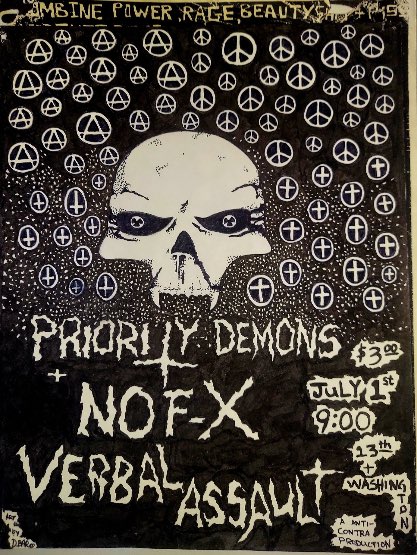 MBINE POWER, RAGE, BEAUTY
PRIORITY DEMONS
$3.00
+
NOF-X
JULY 1st
9:00
VERBAL ASSAULT
13th
+
WASHINGTON
A ANTI-
CONTRA
PRODUCTION
ART
BY